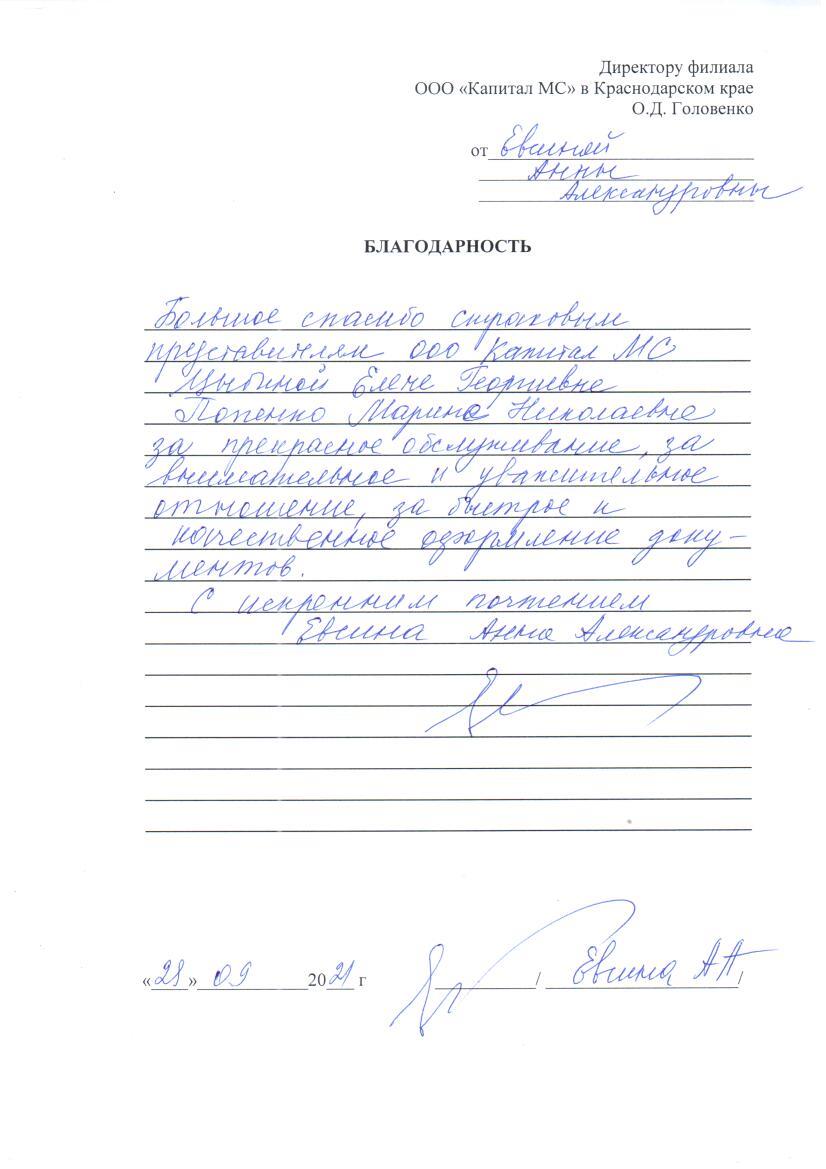 Директору филиала
ООО «Капитал МС» в Краснодарском крае
О.Д. Головенко
от Евсиной
Анны
Александровны
БЛАГОДАРНОСТЬ
Большое спасибо страховым
представителям ООО Капитал МС
Цыбиной Елене Георгиевне
Попенко Марине Николаевне
за прекрасное обслуживание, за
внимательное и уважительное
отношение, за быстрое и
качественное оформление доку-
ментов.
С искренним почтением
Евсина Анна Александровна
«28» 09 2021 г / Евсина АА /